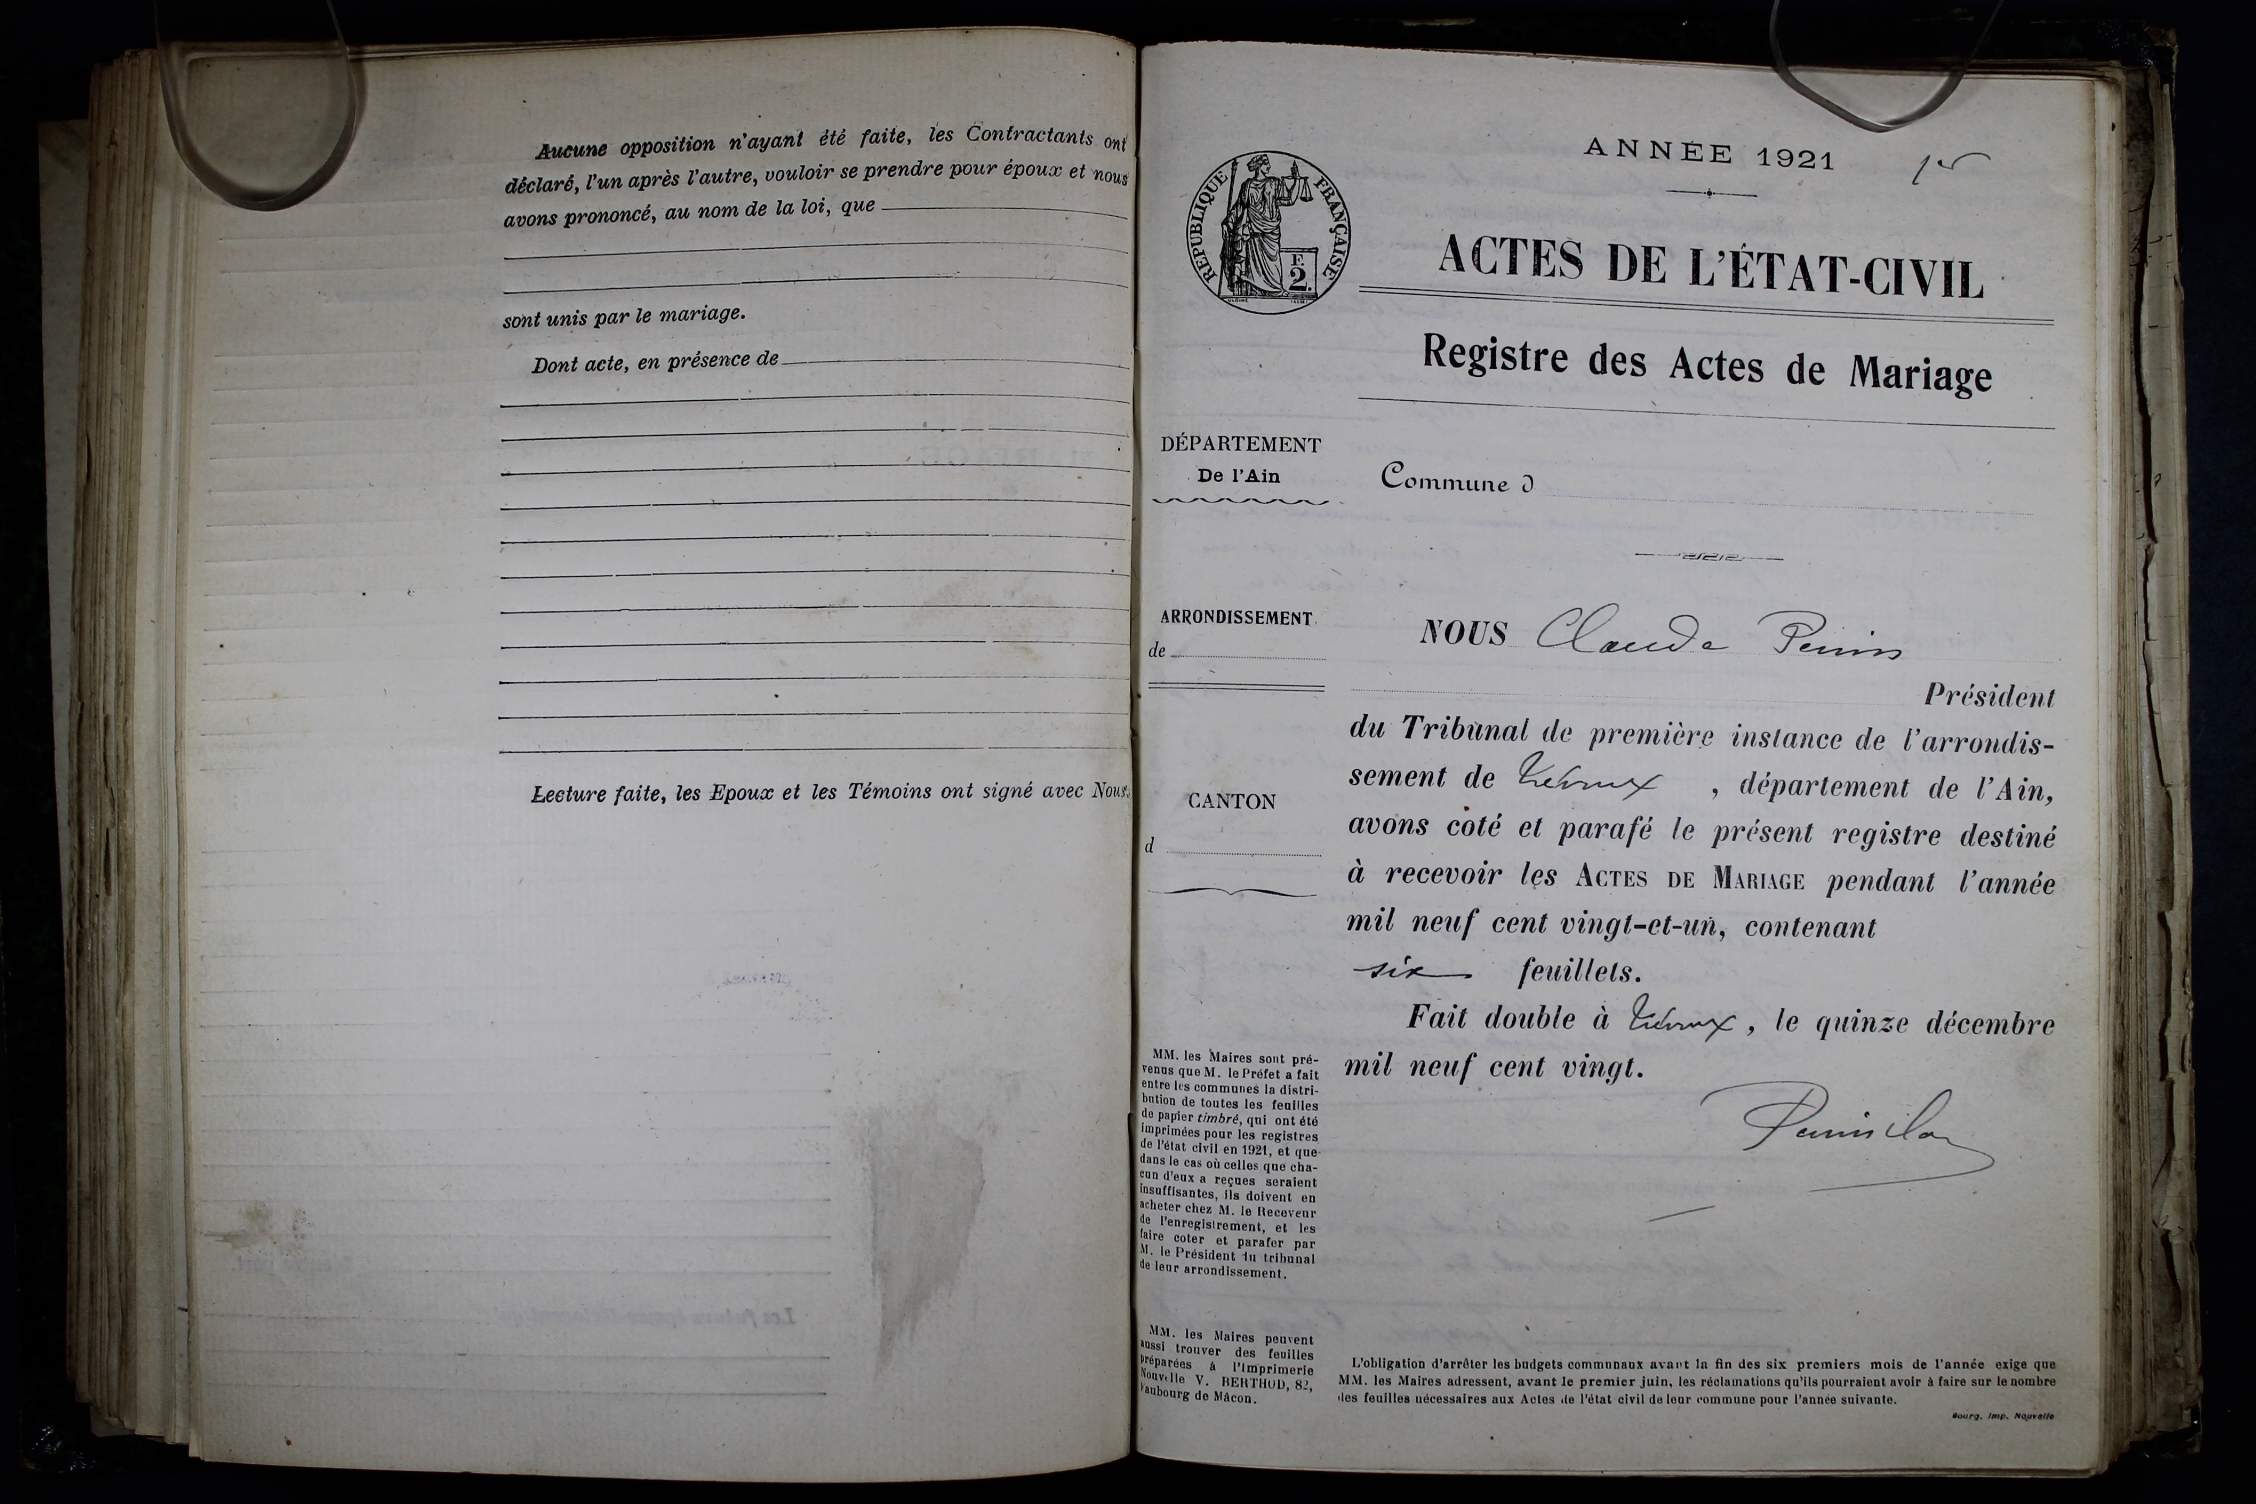 Aucune opposition n'ayant été faite, les Contractants ont
déclaré, l'un après l'autre, vouloir se prendre pour époux et nous
avons prononcé, au nom de la loi, que
sont unis par le mariage.
Dont acte, en présence de
Lecture faite, les Epoux et les Témoins ont signé avec Nous.
ANNÉE 1921
RÉPUBLIQUE FRANÇAISE
F.
2.
ACTES DE L'ÉTAT-CIVIL
Registre des Actes de Mariage
DÉPARTEMENT
De l'Ain
Commune d
ARRONDISSEMENT
de
CANTON
d
NOUS Claude Perrin
Président
du Tribunal de première instance de l'arrondis-
sement de Trévoux , département de l'Ain,
avons coté et parafé le présent registre destiné
à recevoir les ACTES DE MARIAGE pendant l'année
mil neuf cent vingt-et-un, contenant
six feuillets.
Fait double à Trévoux, le quinze décembre
mil neuf cent vingt.
MM. les Maires sont pré-
venus que M. le Préfet a fait
entre les communes la distri-
bution de toutes les feuilles
de papier timbré, qui ont été
imprimées pour les registres
de l'état civil en 1921, et que
dans le cas où celles que cha-
cun d'eux a reçues seraient
insuffisantes, ils doivent en
acheter chez M. le Receveur
de l'enregistrement, et les
faire coter et parafer par
M. le Président du tribunal
de leur arrondissement.
MM. les Maires peuvent
aussi trouver des feuilles
préparées à l'Imprimerie
Nouvelle V. BERTHOD, 82,
Faubourg de Mâcon.
L'obligation d'arrêter les budgets communaux avant la fin des six premiers mois de l'année exige que
MM. les Maires adressent, avant le premier juin, les réclamations qu'ils pourraient avoir à faire sur le nombre
des feuilles nécessaires aux Actes de l'état civil de leur commune pour l'année suivante.
Bourg, Imp. Nouvelle